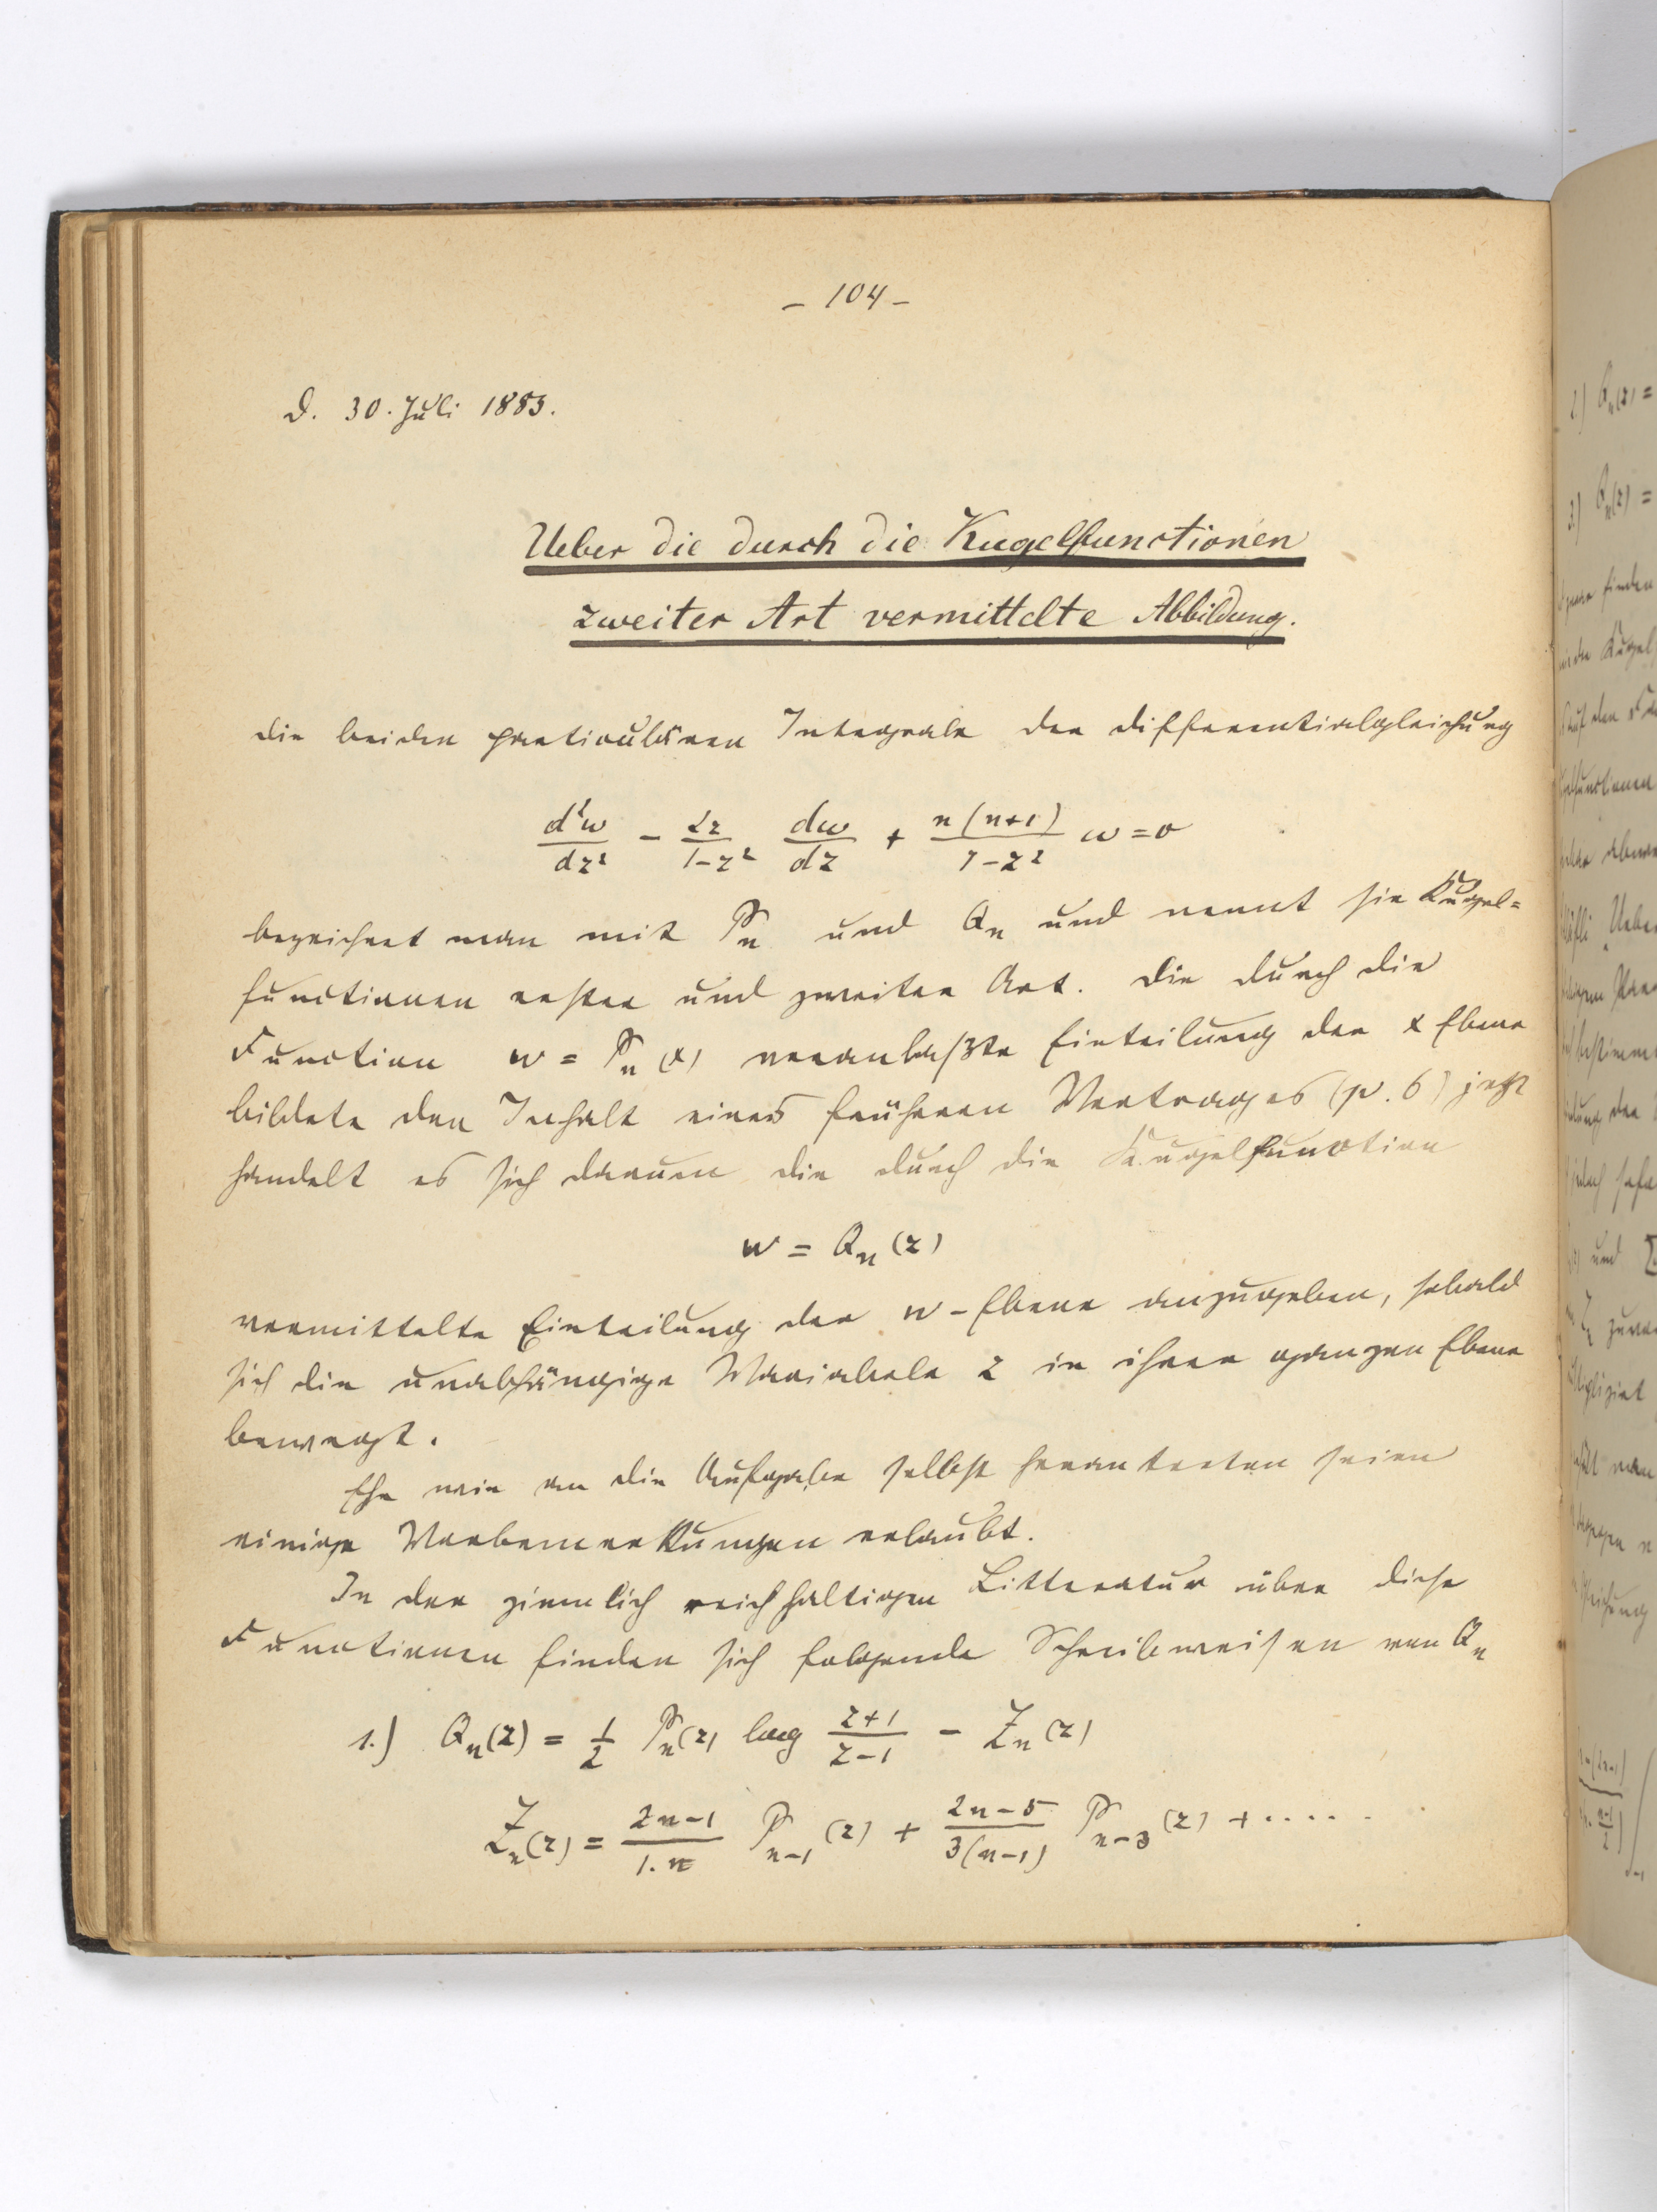 – 104 –
D. 30. Juli 1883.
Ueber die durch die Kugelfunctionen
zweiter Art vermittelte Abbildung.
Die beiden particulären Integrale der Differentialgleichung
d²w/dz² - 2z/1-z² dw/dz + n(n+1)/1-z² w = 0
bezeichnet man mit Pn und Qn und nennt sie Kugel=
functionen erster und zweiter Art. Die durch die
Function w = Pn(x) veranlaßte Einteilung der x Ebene
bildete den Inhalt eines früheren Vortrages (p. 6) jetzt
handelt es sich darum die durch die Kugelfunction
w = Qn (z)
vermittelte Einteilung der w-Ebene anzugeben, sobald
sich die unabhängige Variabele z in ihrer ganzen Ebene
bewegt.
Ehe wir an die Aufgabe selbst herantreten seien
einige Vorbemerkungen erlaubt.
In der ziemlich reichhaltigen Litteratur über diese
Functionen finden sich folgende Schreibweisen von Qn
1.) Qn(z) = 1/2 Pn(z) log z+1/z-1 - Zn(z)
Zn(z) = 2n-1/1.n Pn-1 (z) + 2n-5/3(n-1) Pn-3 (z) + .....
2.) Qn(z) =
3.) Qn(z) =